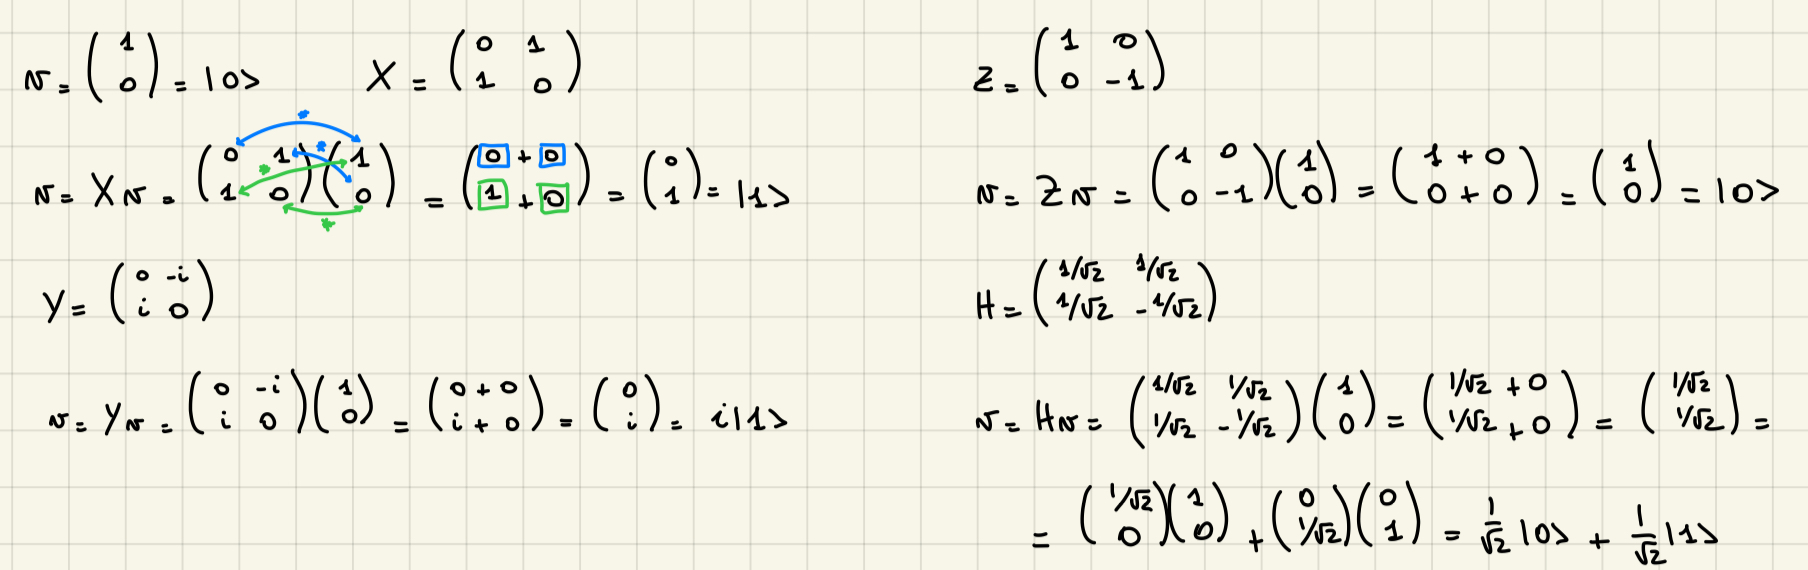 v = (1 0) = |0>   X = (0 1 1 0)
v = Xv = (0 1 1 0)(1 0) = (0 + 0 1 + 0) = (0 1) = |1>
* * * *
Y = (0 -i i 0)
v = Yv = (0 -i i 0)(1 0) = (0 + 0 i + 0) = (0 i) = i|1>
Z = (1 0 0 -1)
v = Zv = (1 0 0 -1)(1 0) = (1 + 0 0 + 0) = (1 0) = |0>
H = (1/√2 1/√2 1/√2 -1/√2)
v = Hv = (1/√2 1/√2 1/√2 -1/√2)(1 0) = (1/√2 + 0 1/√2 + 0) = (1/√2 1/√2) =
= (1/√2 0)(1 0) + (0 1/√2)(0 1) = 1/√2 |0> + 1/√2 |1>